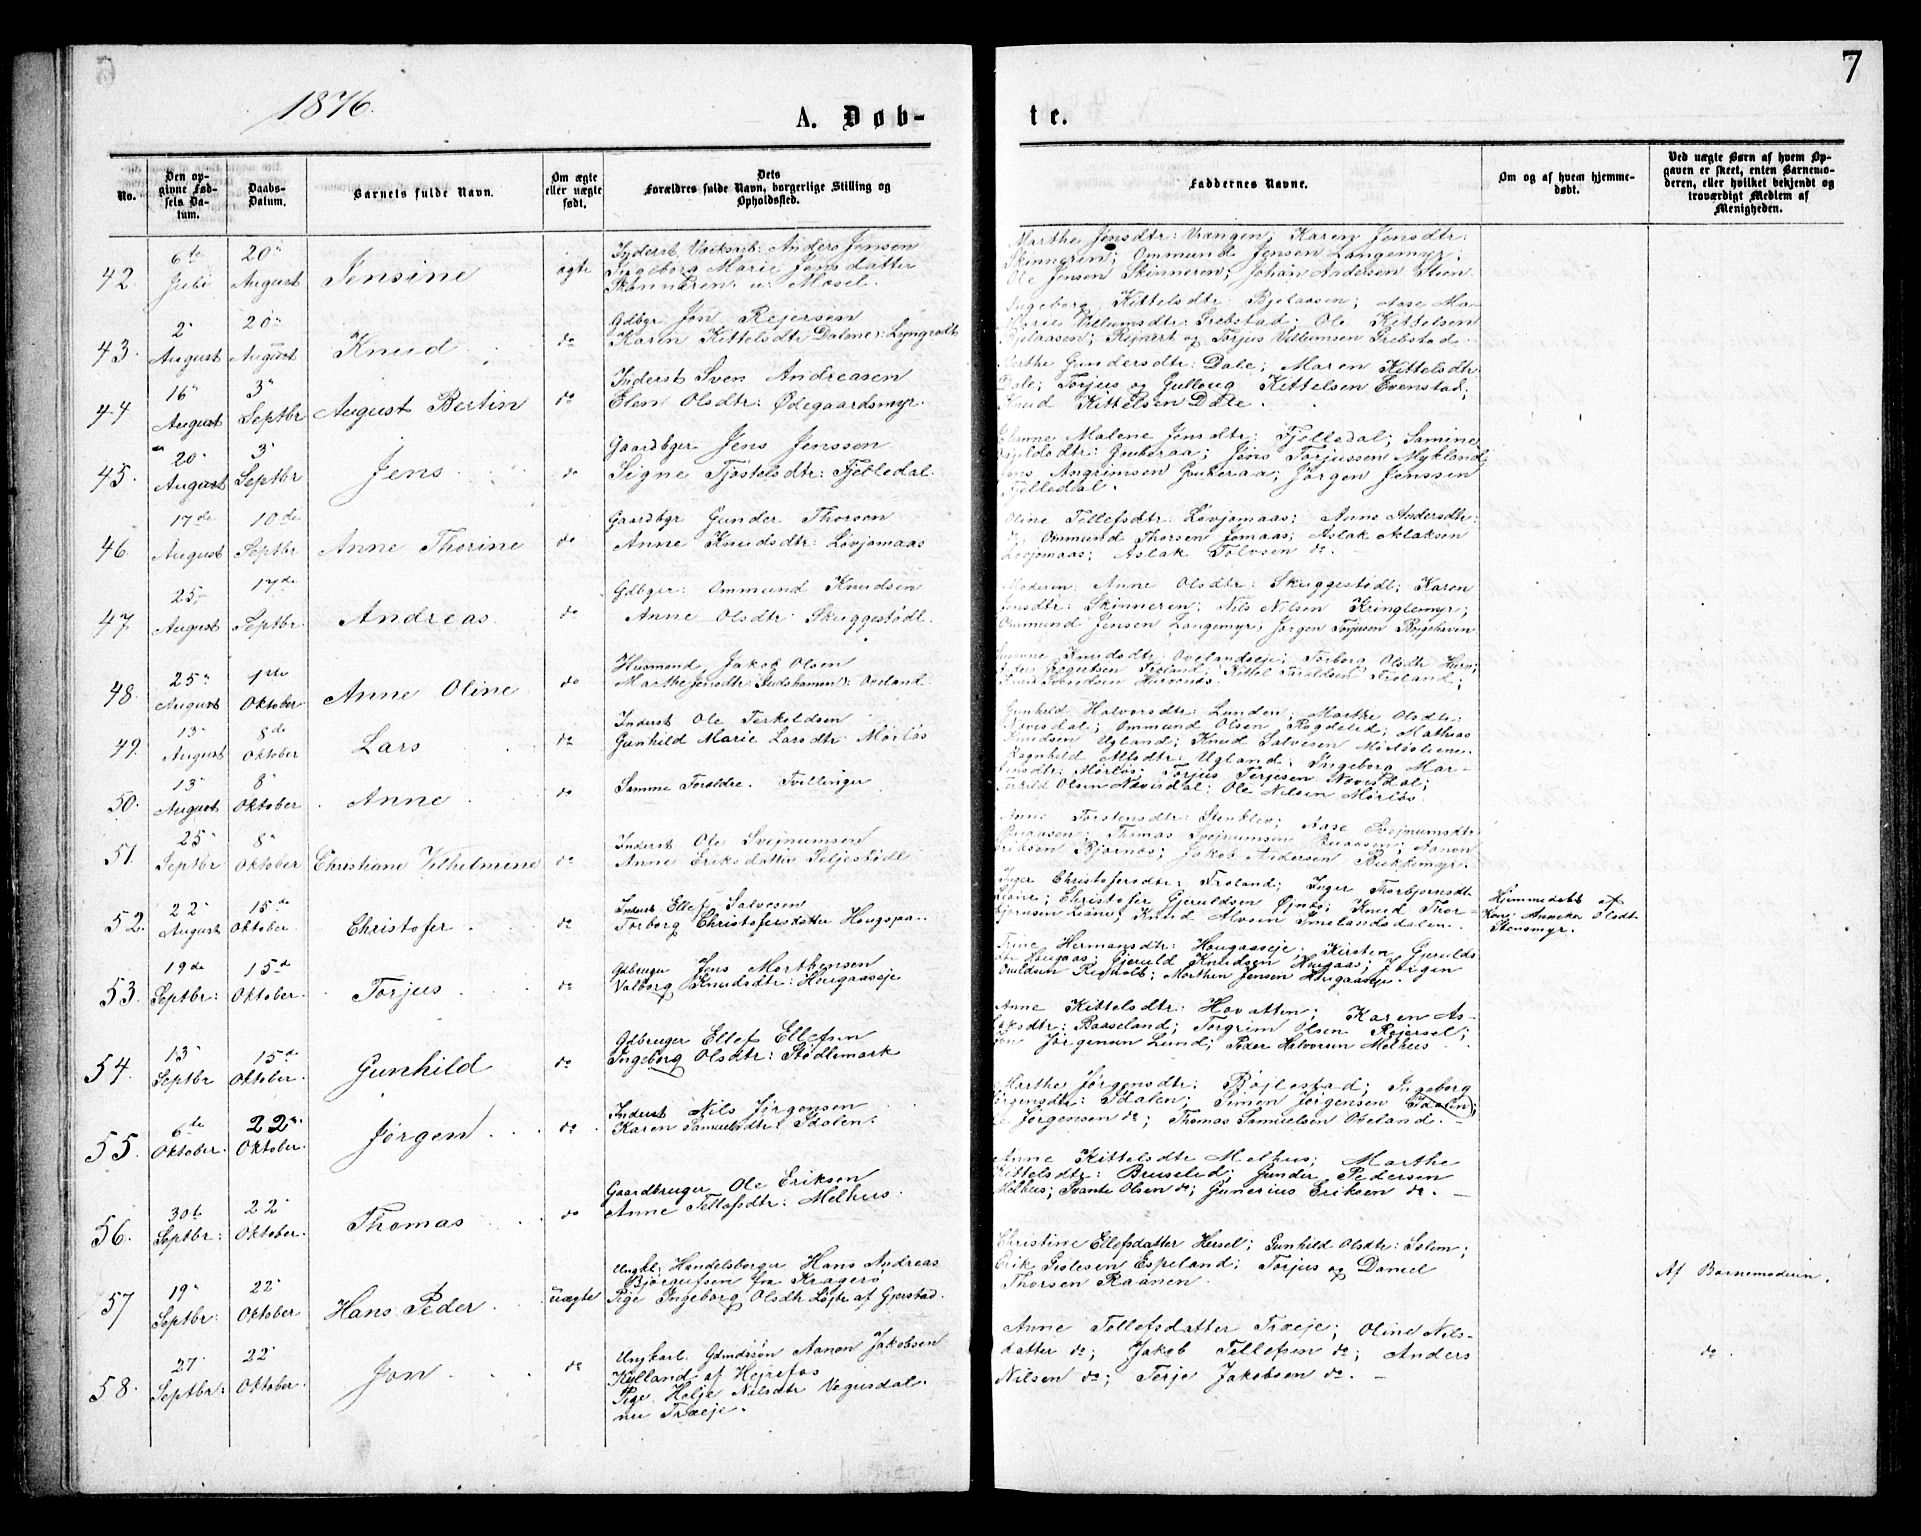 7
1876.
A. Døb-
te.
No.
Den op-
givne Fød-
sels Da-
tum.
Daabs-
Datum.
Barnets fulde Navn.
Om ægte
eller uægte
født.
Dets
Forældres fulde Navn, borgerlige Stilling og
Opholdssted.
Faddernes Navne.
Om og af hvem hjemme-
døbt.
Ved uægte Børn af hvem Op-
gaven er skeet, enten Barnemo-
deren, eller hvilket bekjendt og
troværdigt Medlem af
Menigheden.
42 6te Juli 20 August Jensine ægte
Inderst Anders Jensen
Ingeborg Marie Jensdatter
Skinneren u. Mosel.
Marthe Jensdtr: Vrængen; Karen Jensdtr:
Skinneren; Ommund Jensen Langemyr;
Ole Jensen Skinneren; Johan Andersen Steen
43. 2 August 20 August Knud do
Gdbgr Jon Rejersen
Karen Kittelsdtr Dalene: Lyngrodt
Ingeborg Kittelsdtr: Bjelaasen; Aase Ma-
thilde Villumsdtr: Grebstad; Ole Kittelsen
Bjelaasen; Rejnert og Torjus Villumsen Grebstad.
44 16 August 3 Septbr August Bertin do
Inderst Sven Andreasen
Elen Olsdtr: Ødegaardsmyr.
Marthe Gundersdtr: Dale; Maren Kittelsdtr
Dale; Torjus og Gullaug Kittelsen Evenstad;
Knud Kittelsen Dale.
45. 20 August 3 Septbr Jens do
Gaardbgr Jens Jenssen
Signe Tjostelsdtr: Fjelledal.
Malene Jensdtr: Fjelledal; Samine
Gouberaa; Jens Torjussen Mykland;
Angrimsen Gouberaa; Jørgen Jenssen
Fjelledal.
46. 17de August 10de Septbr Anne Thorine do
Gaardbgr Gunder Thorsen
Anne Knudsdtr: Løvjomaas
Oline Tellefsdtr: Løvjomaas; Anne Andersdtr:
do; Ommund Thorsen Jomaas; Aslak Aslaksen
Løvjomaas; Aslak Tolvsen do. —
47 25 August 17de Septbr Andreas do
Gdbgr: Ommund Knudsen
Anne Olsdtr: Skuggestødl.
Moderen Anne Olsdtr: Skuggestødl; Karen
Jensdtr: Skinneren; Nils Nilsen Kringlemyr;
Ommund Jensen Langemyr; Jørgen Torjusen Bøgehaven
48. 25 August 1ste Oktober Anne Oline do
Husmand Jakob Olsen
Marthe Jensdtr Gudshammen: Oveland
Knudsdtr: Ovelandseje; Torborg Olsdtr
Froland Kittel Taraldsen Froland;
49. 13 August 8de Oktober Lars do
Inderst Ole Terkeldsen
Gunhild Marie Larsdtr Mørløs
Gunhild Halvorsdtr: Lunden; Marthe Olsdtr:
Nævesdal; Ommund Olsen Bøgdelid; Mathias
Knudsen Ugland; Knud Salvesen Mørløslien
50. 13 August 8 Oktober Anne do
Samme Forældre. Tvillinger
Ragnhild Atlsdtr: Ugland; Ingeborg Mar-
tensdtr: Mørløs; Torjus Terjesen Nævesdal;
Olsen Nævesdal; Ole Nilsen Mørløs.
51. 25 Septbr 8 Oktober Christiane Vilhelmine do
Inderst Ole Svejnumsen
Anne Eriksdatter Seljestødl
Anne Torstensdtr: Stenklev; Aase Svejnumsdtr
Buaasen; Thomas Svejnumsen Buaasen; Aanon
Eriksen Bjørnos; Jakob Andersen Bukkemyr.
52. 22 August 15de Oktober Christofer do
Inderst Ellef Salvesen
Torborg Christofersdatter Hougspa..
Inger Christofersdtr: Froland; Inger Thorbjørnsdtr
Liane; Christofer Gjeruldsen Øjnæs; Knud Thor-
bjørnsen Liane; Knud Alvsen Smelandsdalen.
Hjemmedøbt af
Kone Annika Olsdtr
Stensmyr.
53. 19de Septbr: 15de Oktober Torjus do
Gdbruger Jens Morthensen
Valborg Knudsdtr: Hougaaseje
Trine Hermansdtr: Hougaaseje; Kirsten Gjerulds-
dtr Hougaas; Gjeruld Knudsen Hougaas; Jørgen
Morthen Jensen Hougaaseje.
54. 13 Septbr 15de Oktober Gunhild do
Gdbruger Ellef Ellefsen
Ingeborg Olsdtr: Stødlemark
Anne Kittelsdtr: Hovatten; Karen As-
laksdtr: Baaseland; Torgrim Olsen Rejersel;
Jon Jørgensen Lund; Peder Halvorsen Melhus.
55. 6te Oktober 22 Oktober Jørgen do
Inderst Nils Jørgensen
Karen Samuelsdtr: Idalen.
Marthe Jørgensdtr: Bøjlestad; Ingeborg
Jørgensdtr: Idalen; Simen Jørgensen Idalen;
Jørgensen do; Thomas Samuelsen Oveland. —
56. 30te Septbr: 22 Oktober Thomas do
Gaardbruger Ole Eriksen
Anne Tellefsdtr: Melhus.
Anne Kittelsdtr Melhus; Marthe
Kittelsdtr: Bruselid; Gunder Pedersen
Melhus; Svante Olsen do; Gunerius Eriksen do. —
57 19 Septbr: 22 Oktober Hans Peder uægte
Ungkl: Handelsborger Hans Andreas
Bjørgufsen fra Kragerø
Pige Ingeborg Olsdtr Løjte af Gjerstad.
Christine Ellefsdatter Hersel; Gunhild Olsdtr: Solem;
Erik Gislesen Espeland; Torjus og Daniel
Thorsen Raanen.
Af Barnemoderen.
58. 27 Septbr: 22 Oktober Jon do
Ungkarl Gdmdssøn Aanon Jakobsen
Kylland af Hejrefos
Pige Helje Nilsdtr Vegusdal
nu Træeje.
Anne Tellefsdatter Træeje; Oline Nils-
datter do; Jakob Tellefsen do; Anders
Nilsen do; Terje Jakobsen do. —
do